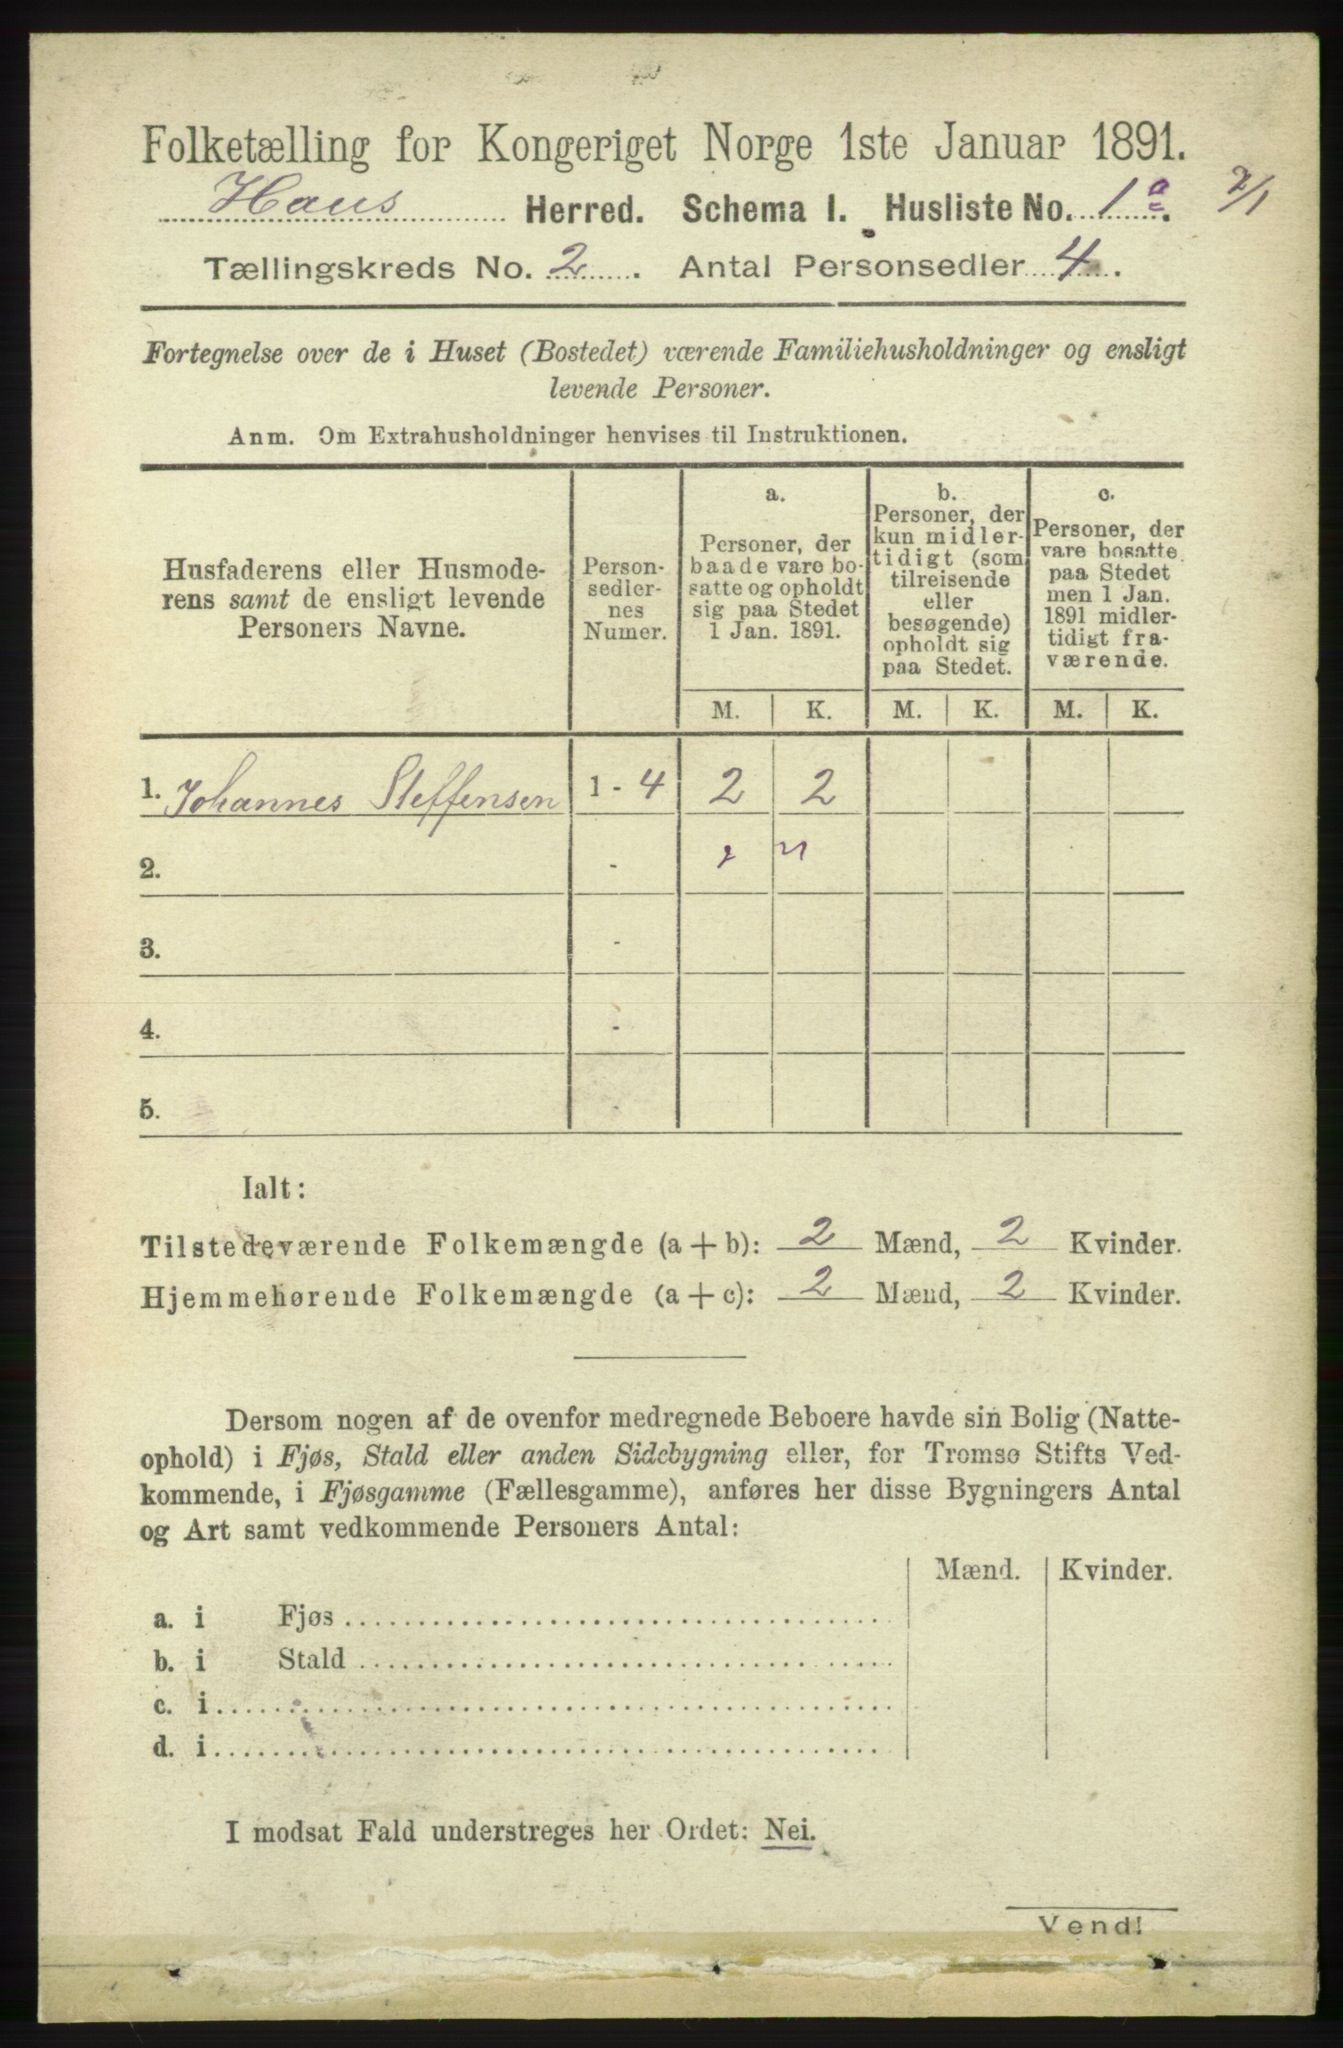 Folketælling for Kongeriget Norge 1ste Januar 1891.
Haus Herred. Schema I. Husliste No. 1a. 2/1
Tællingskreds No. 2. Antal Personsedler 4.
Fortegnelse over de i Huset (Bostedet) værende Familiehusholdninger og ensligt
levende Personer.
Anm. Om Extrahusholdninger henvises til Instruktionen.
Husfaderens eller Husmode-
rens samt de ensligt levende
Personers Navne.
Person-
sedler-
nes
Numer.
a.
Personer, der
baade vare bo-
satte og opholdt
sig paa Stedet
1 Jan. 1891.
b.
Personer, der
kun midler-
tidigt (som
tilreisende
eller
besøgende)
opholdt sig
paa Stedet.
c.
Personer, der
vare bosatte
paa Stedet
men 1 Jan.
1891 midler-
tidigt fra-
værende.
M. K. M. K. M. K.
1. Johannes Steffensen 1 - 4 2 2
2. -
3. -
4. -
5. -
Ialt:
Tilstedeværende Folkemængde (a + b): 2 Mænd, 2 Kvinder.
Hjemmehørende Folkemængde (a + c): 2 Mænd, 2 Kvinder.
Dersom nogen af de ovenfor medregnede Beboere havde sin Bolig (Natte-
ophold) i Fjøs, Stald eller anden Sidebygning eller, for Tromsø Stifts Ved-
kommende, i Fjøsgamme (Fællesgamme), anføres her disse Bygningers Antal
og Art samt vedkommende Personers Antal:
Mænd. Kvinder.
a. i Fjøs
b. i Stald
c. i
d. i
I modsat Fald understreges her Ordet: Nei.
Vend!